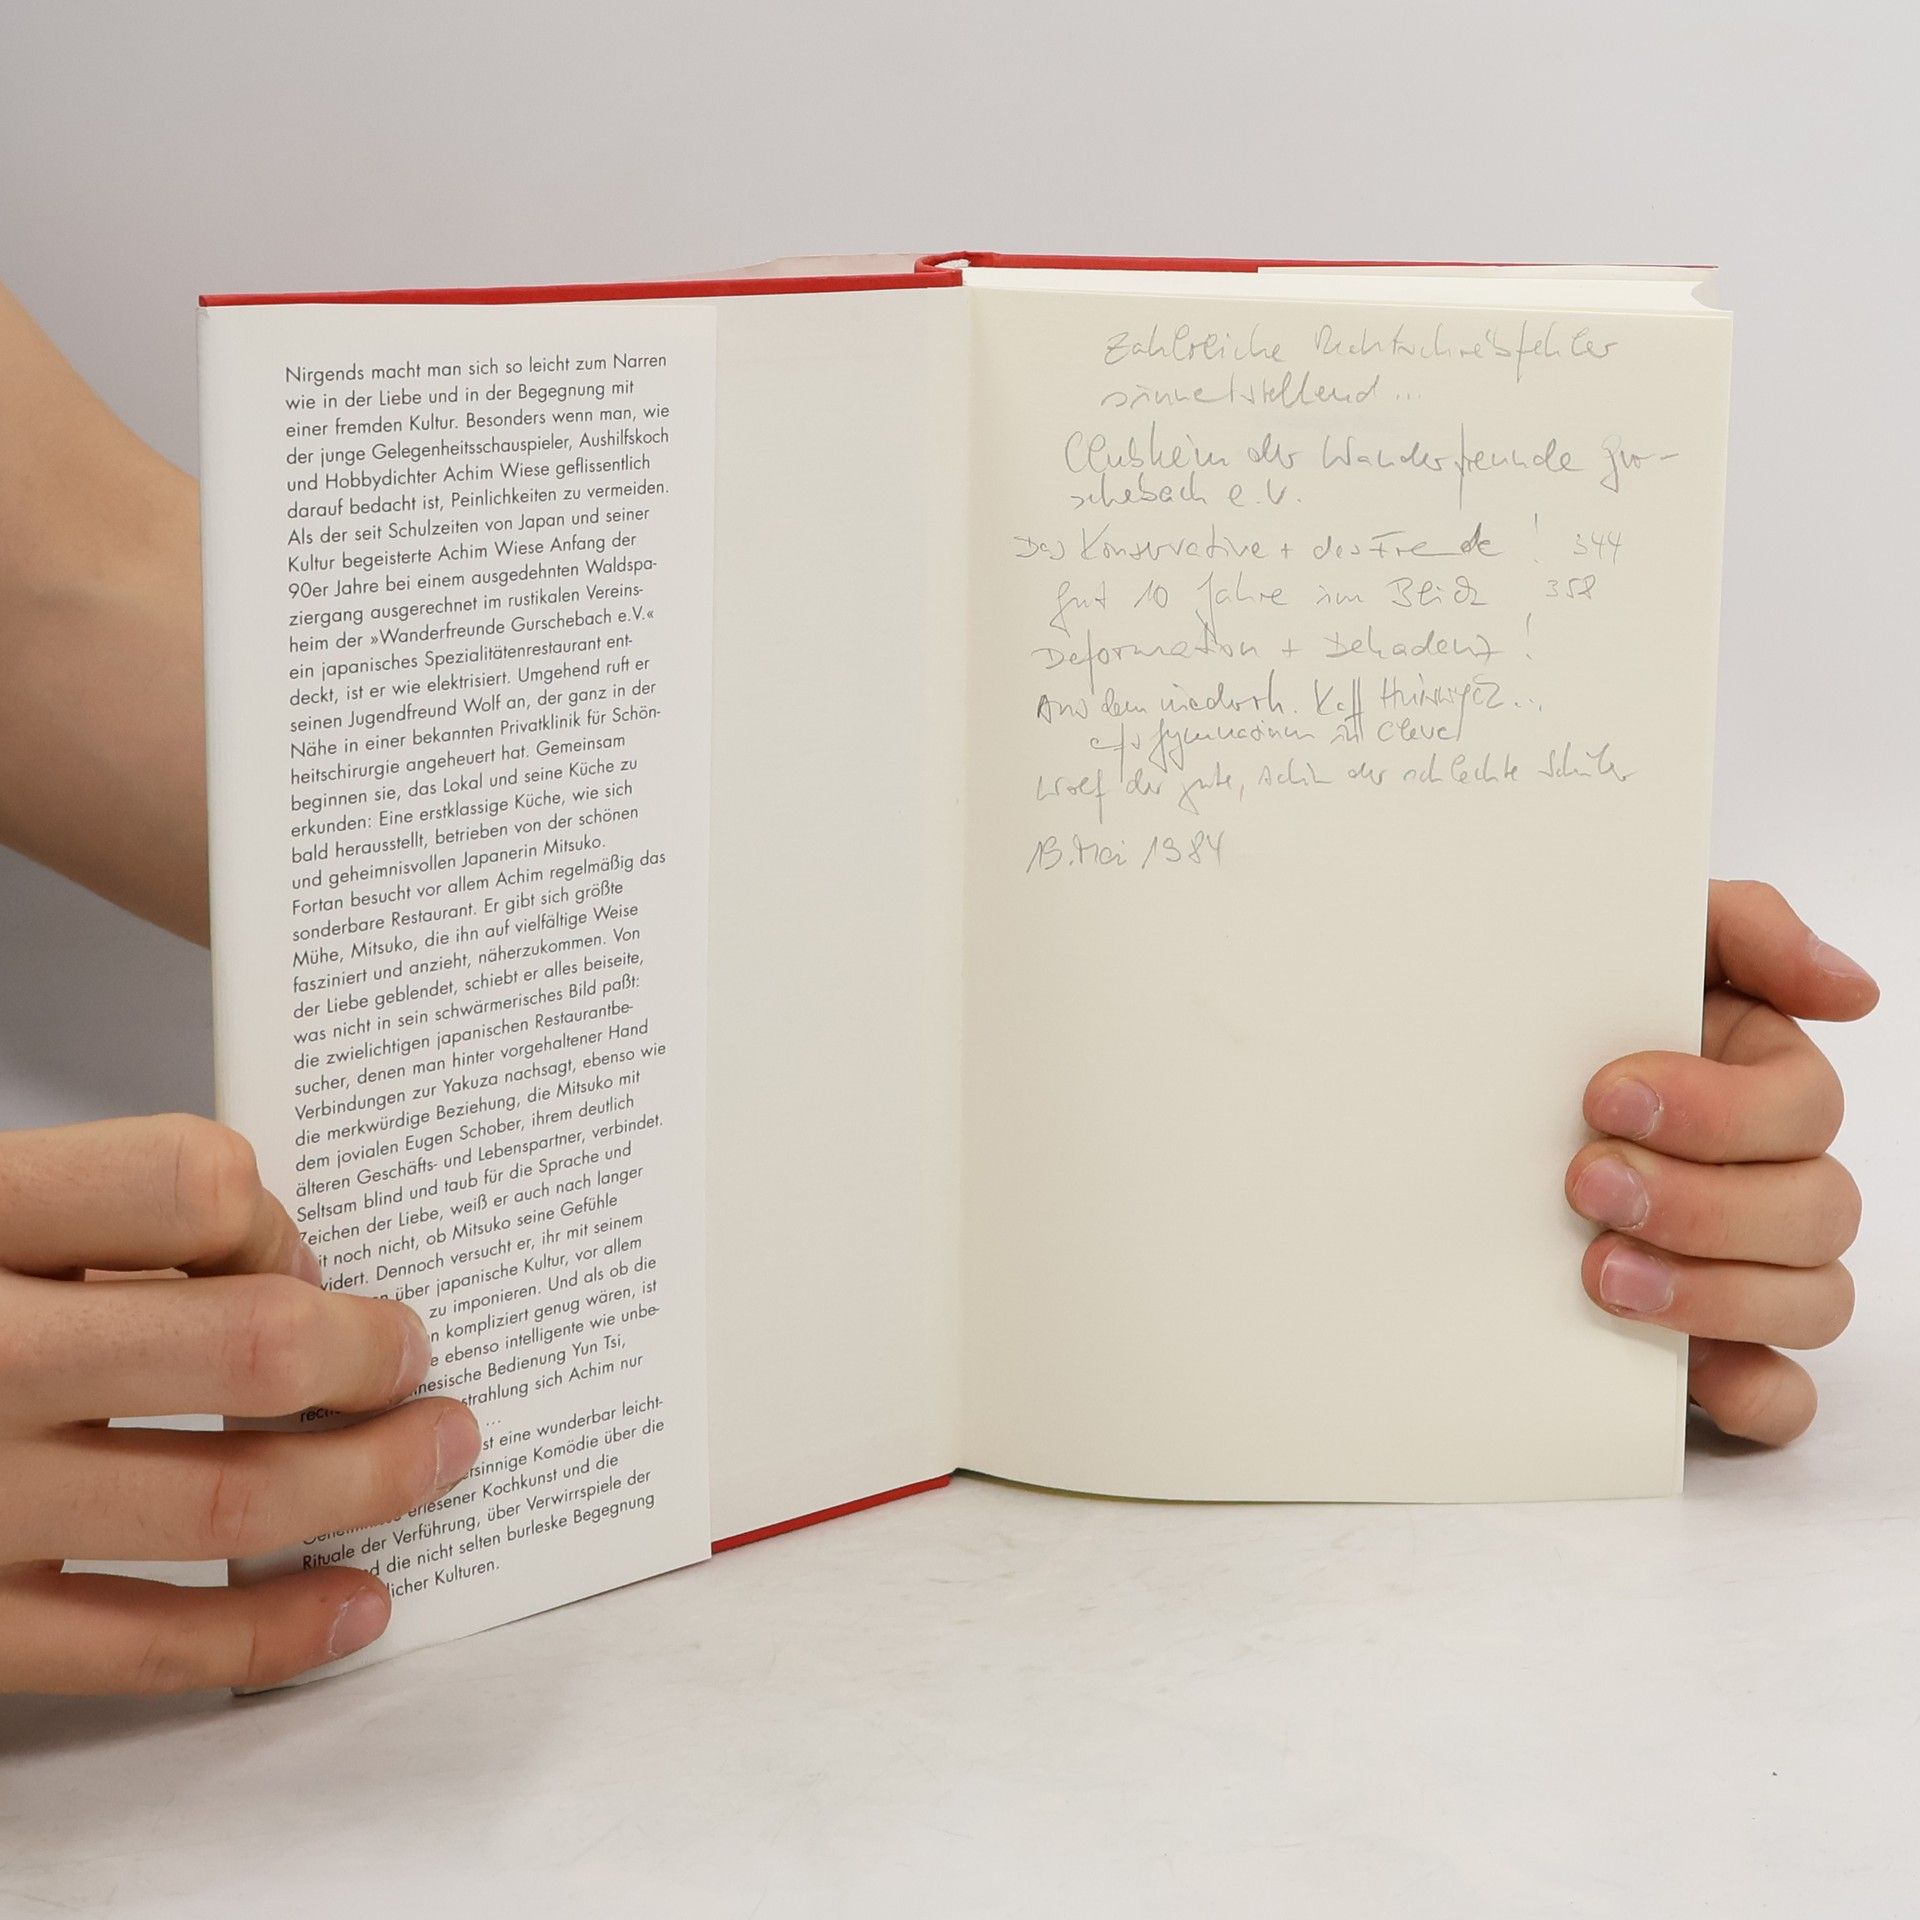 Nirgends macht man sich so leicht zum Narren
wie in der Liebe und in der Begegnung mit
einer fremden Kultur. Besonders wenn man, wie
der junge Gelegenheitsschauspieler, Aushilfskoch
und Hobbydichter Achim Wiese geflissentlich
darauf bedacht ist, Peinlichkeiten zu vermeiden.
Als der seit Schulzeiten von Japan und seiner
Kultur begeisterte Achim Wiese Anfang der
90er Jahre bei einem ausgedehnten Waldspa-
ziergang ausgerechnet im rustikalen Vereins-
heim der »Wanderfreunde Gurschebach e.V.«
ein japanisches Spezialitätenrestaurant ent-
deckt, ist er wie elektrisiert. Umgehend ruft er
seinen Jugendfreund Wolf an, der ganz in der
Nähe in einer bekannten Privatklinik für Schön-
heitschirurgie angeheuert hat. Gemeinsam
beginnen sie, das Lokal und seine Küche zu
erkunden: Eine erstklassige Küche, wie sich
bald herausstellt, betrieben von der schönen
und geheimnisvollen Japanerin Mitsuko.
Fortan besucht vor allem Achim regelmäßig das
sonderbare Restaurant. Er gibt sich größte
Mühe, Mitsuko, die ihn auf vielfältige Weise
fasziniert und anzieht, näherzukommen. Von
der Liebe geblendet, schiebt er alles beiseite,
was nicht in sein schwärmerisches Bild paßt:
die zwielichtigen japanischen Restaurantbe-
sucher, denen man hinter vorgehaltener Hand
Verbindungen zur Yakuza nachsagt, ebenso wie
die merkwürdige Beziehung, die Mitsuko mit
dem jovialen Eugen Schober, ihrem deutlich
älteren Geschäfts- und Lebenspartner, verbindet.
Seltsam blind und taub für die Sprache und
Zeichen der Liebe, weiß er auch nach langer
it noch nicht, ob Mitsuko seine Gefühle
vidert. Dennoch versucht er, ihr mit seinem
n über japanische Kultur, vor allem
zu imponieren. Und als ob die
n kompliziert genug wären, ist
e ebenso intelligente wie unbe-
nesische Bedienung Yun Tsi,
strahlung sich Achim nur
...
st eine wunderbar leicht-
rsinnige Komödie über die
erlesener Kochkunst und die
Rituale der Verführung, über Verwirrspiele der
d die nicht selten burleske Begegnung
licher Kulturen.
Zahlreiche Rechtschreibfehler
sinnetstellend...
Clubheim der Wanderfreunde Gur-
schebach e.V.
Das Konservative + das Fremde ! 344
gut 10 Jahre im Blick 358
Deformation + Dekadenz !
Aus dem niederrh. Kaff
Gymnasium in Cleve
Wolf der gute, Achim der schlechte Schüler
13. Mai 1984